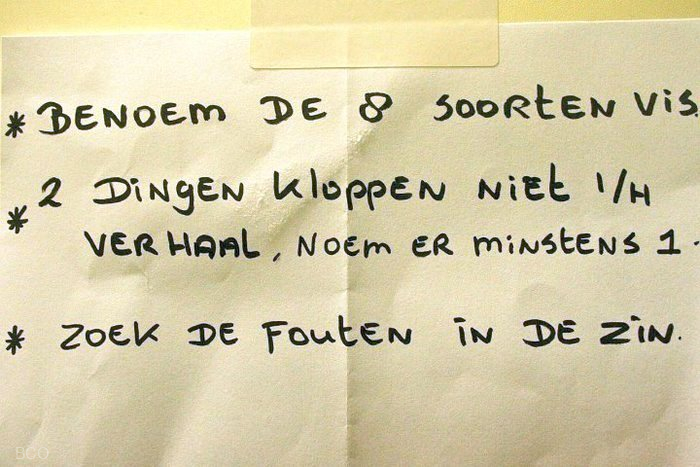 * BENOEM DE 8 SOORTEN VIS.
* 2 DINGEN KLOPPEN NIET I/H
VERHAAL, NOEM ER MINSTENS 1.
* ZOEK DE FOUTEN IN DE ZIN.
BCO